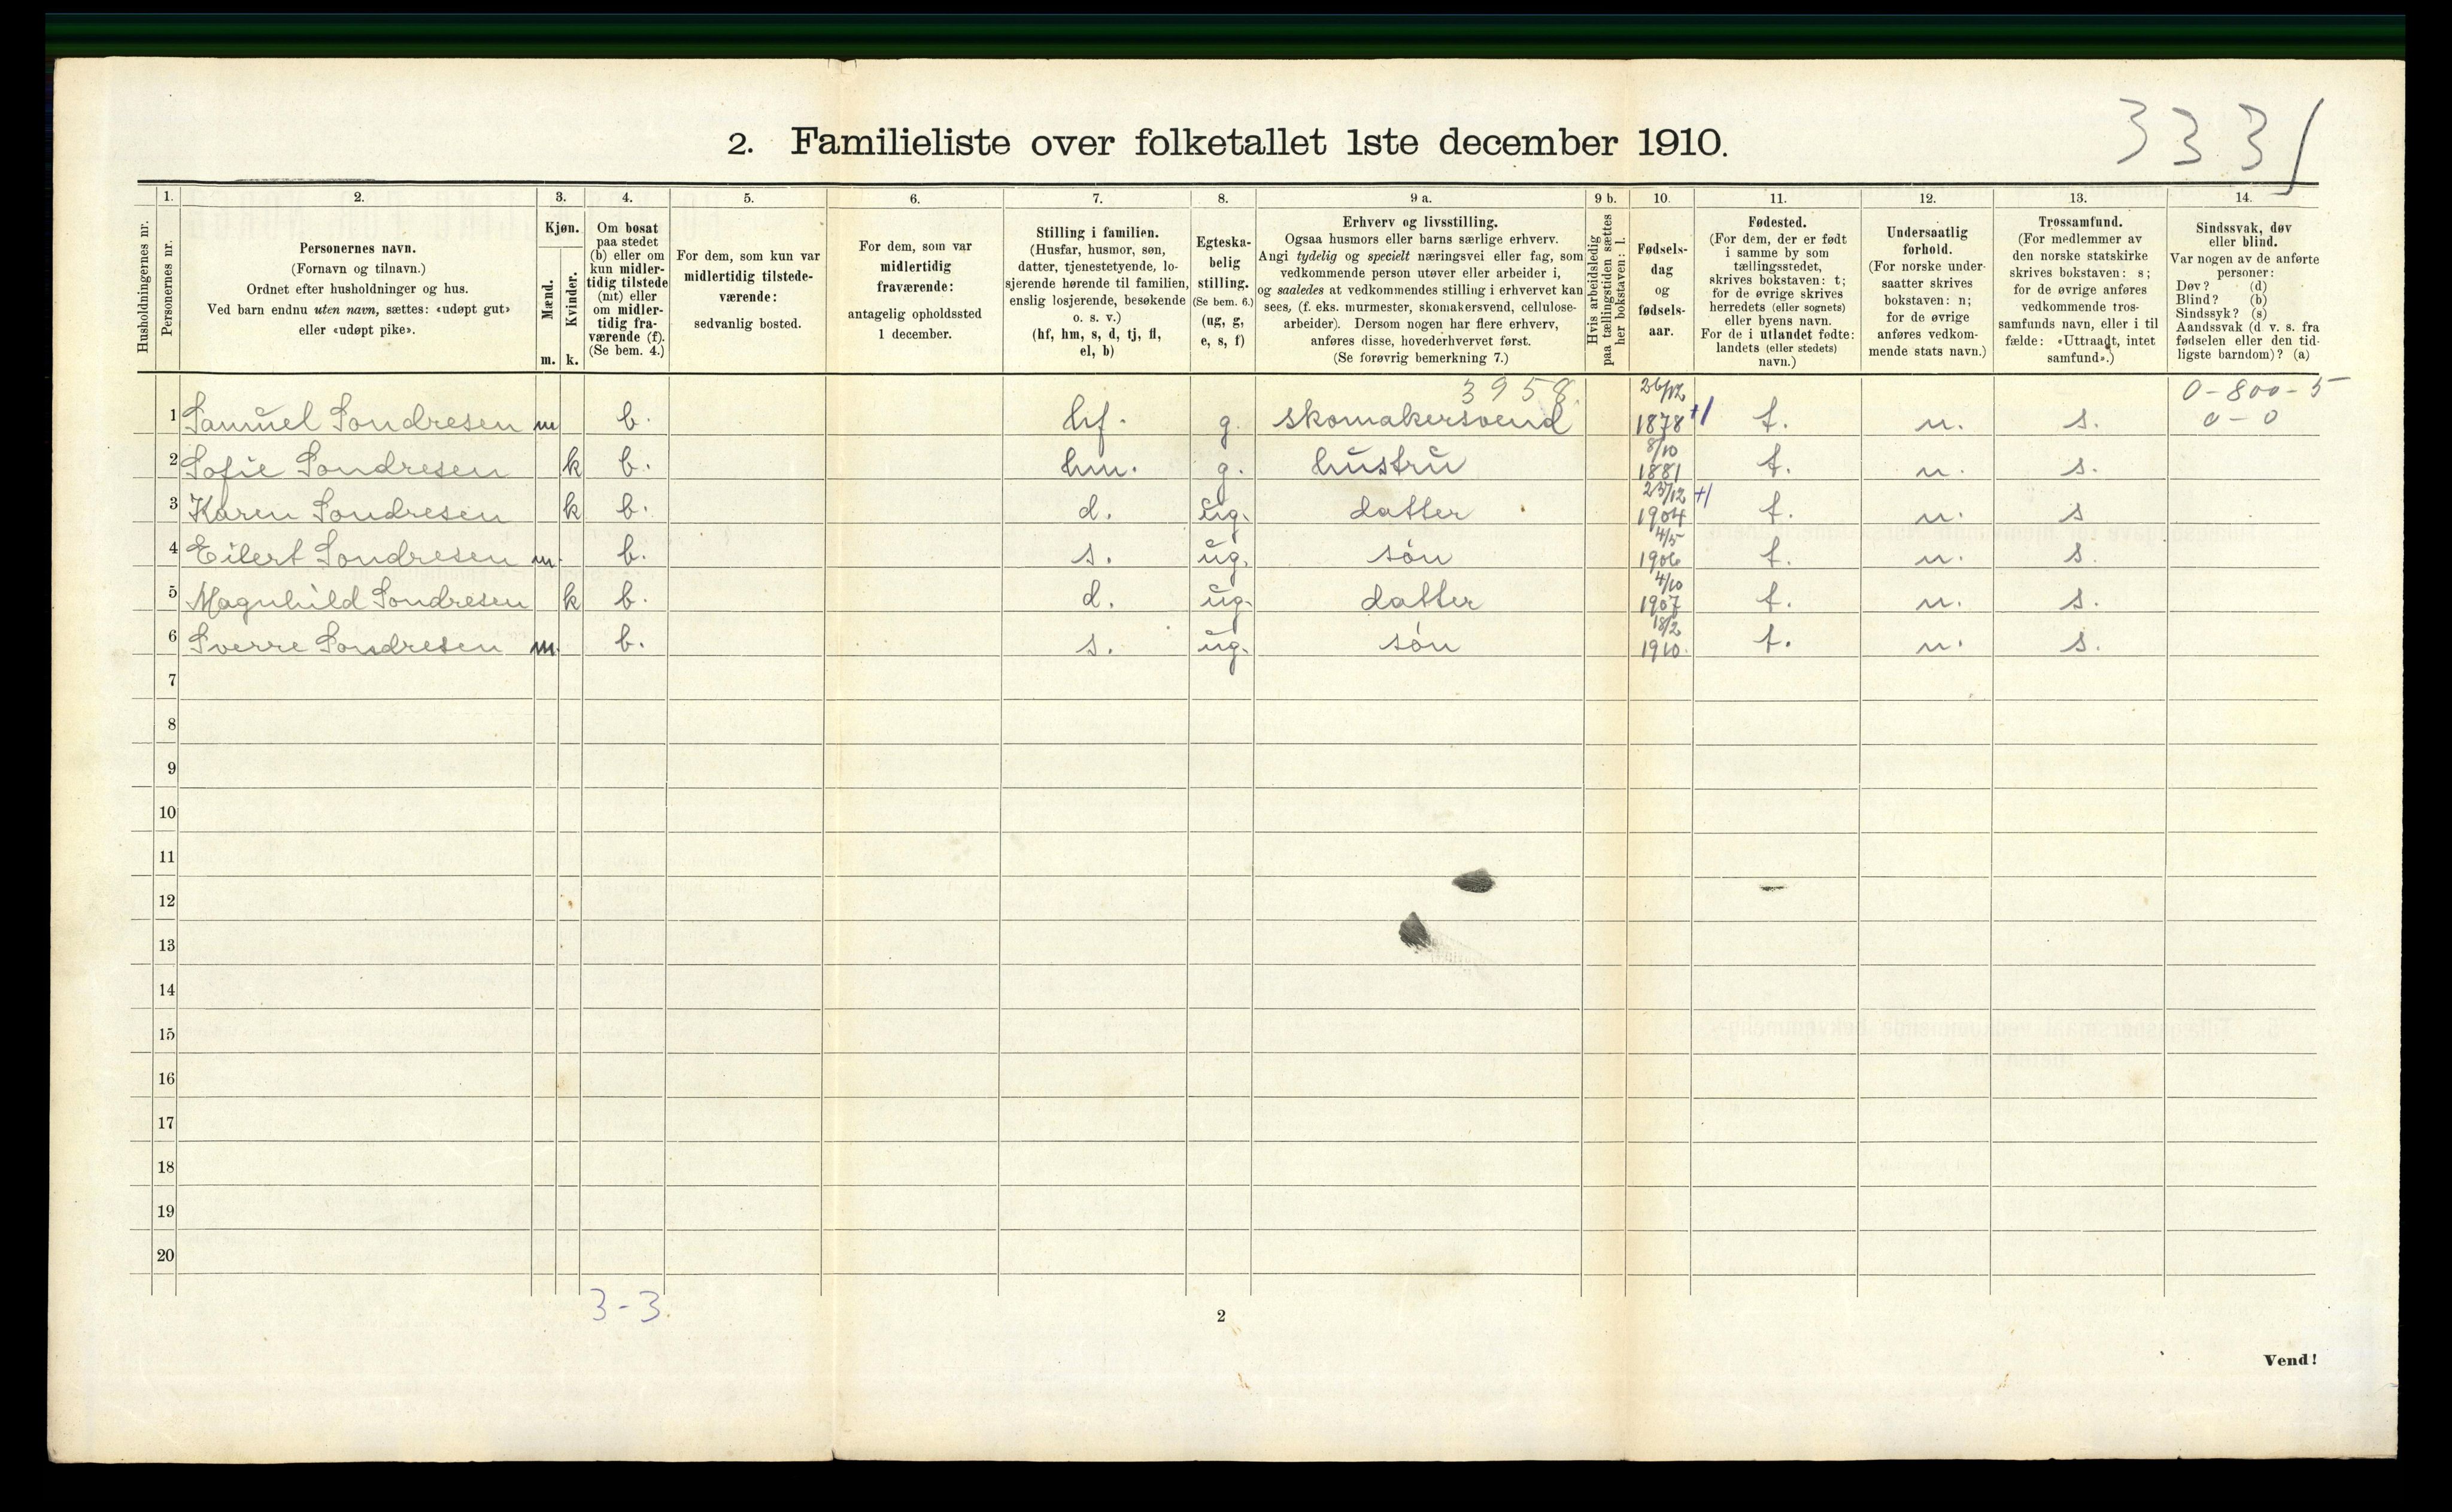 3331
2. Familieliste over folketallet 1ste december 1910.
Husholdningernes nr.
1. Personernes nr.
2. Personernes navn.
(Fornavn og tilnavn.)
Ordnet efter husholdninger og hus.
Ved barn endnu uten navn, sættes: «udøpt gut»
eller «udøpt pike».
3. Kjøn.
Mænd. Kvinder.
m. k.
4. Om bosat
paa stedet
(b) eller om
kun midler-
tidig tilstede
(mt) eller
om midler-
tidig fra-
værende (f).
(Se bem. 4.)
5. For dem, som kun var
midlertidig tilstede-
værende:
sedvanlig bosted.
6. For dem, som var
midlertidig
fraværende:
antagelig opholdssted
1 december.
7. Stilling i familien.
(Husfar, husmor, søn,
datter, tjenestetyende, lo-
sjerende hørende til familien,
enslig losjerende, besøkende
o. s. v.)
(hf, hm, s, d, tj, fl,
el, b)
8. Egteska-
belig
stilling.
(Se bem. 6.)
(ug, g,
e, s, f)
9 a. Erhverv og livsstilling.
Ogsaa husmors eller barns særlige erhverv.
Angi tydelig og specielt næringsvei eller fag, som
vedkommende person utøver eller arbeider i,
og saaledes at vedkommendes stilling i erhvervet kan
sees, (f. eks. murmester, skomakersvend, cellulose-
arbeider). Dersom nogen har flere erhverv,
anføres disse, hovederhvervet først.
(Se forøvrig bemerkning 7.)
9 b. Hvis arbeidsledig
paa tællingstiden sættes
her bokstaven: l.
10. Fødsels-
dag
og
fødsels-
aar.
11. Fødested.
(For dem, der er født
i samme by som
tællingsstedet,
skrives bokstaven: t;
for de øvrige skrives
herredets (eller sognets)
eller byens navn.
For de i utlandet fødte:
landets (eller stedets)
navn.)
12. Undersaatlig
forhold.
(For norske under-
saatter skrives
bokstaven: n;
for de øvrige
anføres vedkom-
mende stats navn.)
13. Trossamfund.
(For medlemmer av
den norske statskirke
skrives bokstaven: s;
for de øvrige anføres
vedkommende tros-
samfunds navn, eller i til
fælde: «Uttraadt, intet
samfund».)
14. Sindssvak, døv
eller blind.
Var nogen av de anførte
personer:
Døv? (d)
Blind? (b)
Sindssyk? (s)
Aandssvak (d. v. s. fra
fødselen eller den tid-
ligste barndom)? (a)
3958. 0-800-5
1 Samuel Sondresen m b. hf. g. skomakersvend 26/12 1878 t. n. s. 0-0
2 Sofie Sondresen k b. hm. g. hustru 8/10 1881 t. n. s.
3 Karen Sondresen k b. d. ug. datter 23/12 1904 t. n. s
4 Eilert Sondresen m. b. s. ug. søn 4/5 1906 t. n. s.
5 Magnhild Sondresen k b. d. ug. datter 4/10 1907 t. n. s.
6 Sverre Sondresen m. b. s. ug. søn 18/2 1910. t. n. s.
7
8
9
10
11
12
13
14
15
16
17
18
19
20
3-3.
2
Vend!